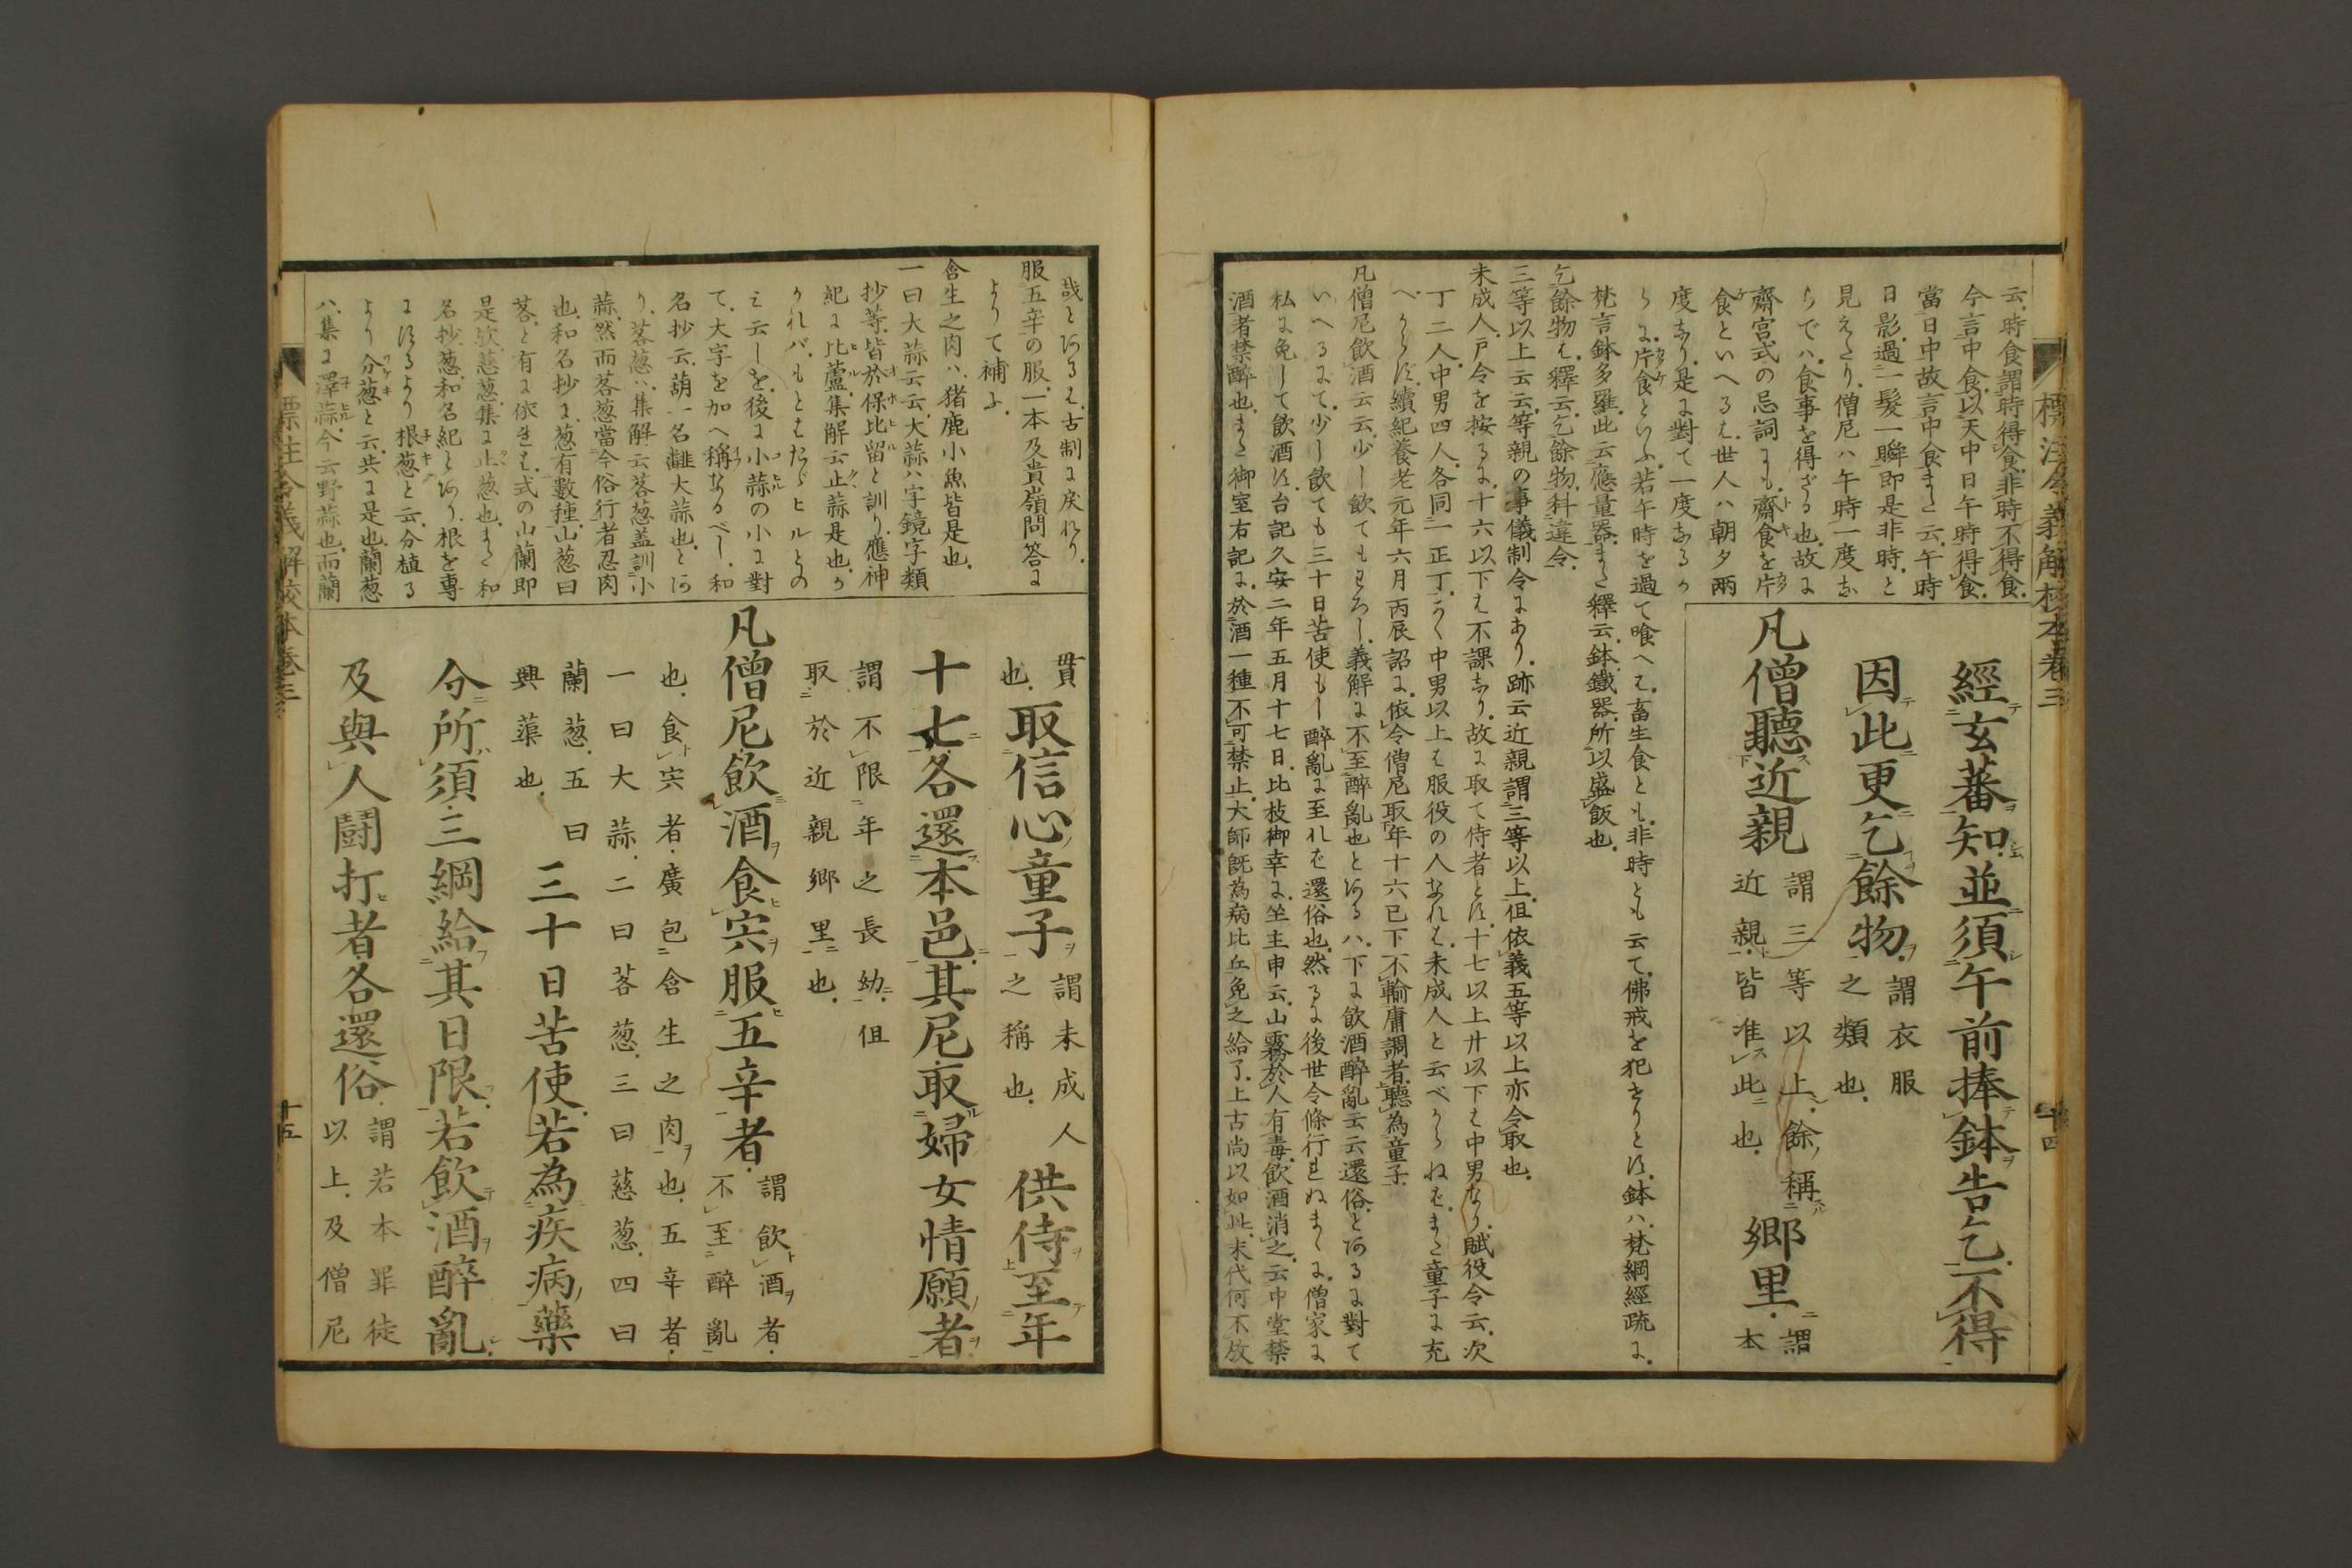 標注令義解校本卷三
十四
云、時食謂時得食、非時不得食、
今言中食、以天中日午時得食、
當日中故言中食、また云、午時
日影過一髮一瞬、即是非時、と
見えたり、僧尼ハ午時一度な
らでハ、食事を得ざる也、故に
齋宮式の忌詞にも、齋食を片
食といへるは、世人ハ朝夕兩
度なり、是に對て一度なるか
らに、片食といふ、若午時を過て喰へは、畜生食とも、非時とも云て、佛戒を犯せりとす、鉢ハ、梵網經疏に、
梵言鉢多羅、此云應量器、また釋云、鉢、鐵器、所以盛飯也、
乞餘物は、釋云、乞餘物、科違令、
三等以上云云、等親の事儀制令にあり、跡云近親謂三等以上、但依義五等以上亦令取也、
未成人、戸令を按るに、十六以下は不課なり、故に取て侍者とす、十七以上廿以下は中男なり、賦役令云、次
丁二人、中男四人、各同一正丁、かく中男以上は服役の人なれは、未成人と云べからねど、また童子に充
べからず、續紀養老元年六月丙辰詔に、依令僧尼取年十六已下、不輸庸調者、聽為童子、
凡僧尼飲酒云云、少し飲てもわろし、義解に不至醉亂也とあるハ、下に飲酒醉亂云云還俗、とあるに對て
いへるにて、少し飲ても三十日苦使もし醉亂に至れば還俗也、然るに後世令條行れぬまゝに、僧家に
私に免して飲酒す、台記久安二年五月十七日、比枝御幸に、坐主申云、山霧於人有毒、飲酒消之、云中堂禁
酒者禁醉也、また御室右記に、於酒一種不可禁止、大師既為病比丘免之給了、上古尚以如此、末代何不放
經玄蕃知、並須午前捧鉢告乞、不得
因此更乞餘物、謂衣服
之類也、
凡僧聽近親謂三等以上、餘稱
近親、皆准此也、鄉里、謂
本
哉とあるは、古制に戾れり、
服五辛の服、一本及貴嶺問答に
よりて補ふ、
含生之肉ハ、猪鹿小魚皆是也、
一曰大蒜云云、大蒜ハ字鏡字類
抄等、皆於保比留と訓り、應神
紀に比蘆、集解云止蒜是也、か
かれバ、もとはたゞヒルとの
み云しを、後に小蒜の小に對
て、大字を加へ稱なるべし、和
名抄云、葫一名䪥大蒜也、とあ
り、茖葱ハ、集解云茖葱盖訓小
蒜、然而茖葱當今俗行者忍肉
也、和名抄に、葱有數種、山葱曰
茖、と有に依れは、式の山蘭即
是歟、慈葱、集に止葱也、また和
名抄、葱、和名紀とあり、根を專
にするより根葱と云、分植る
より分葱と云、共に是也、蘭葱
ハ、集に澤蒜、今云野蒜也、而蘭
貫
也、取信心童子、謂未成人
之稱也、供侍、至年
十七、各還本邑、其尼取婦女情願者、
謂不限年之長幼、但
取於近親鄉里也、
凡僧尼飲酒食宍服五辛者、謂飲酒者、
不至醉亂
也、食宍者、廣包含生之肉也、五辛者、
一曰大蒜、二曰茖葱、三曰慈葱、四曰
蘭葱、五曰
興蕖也、三十日苦使、若為疾病藥
分所須、三綱給其日限、若飲酒醉亂、
及與人鬪打者、各還俗、謂若本罪徒
以上、及僧尼
標注令義解校本卷三
十五